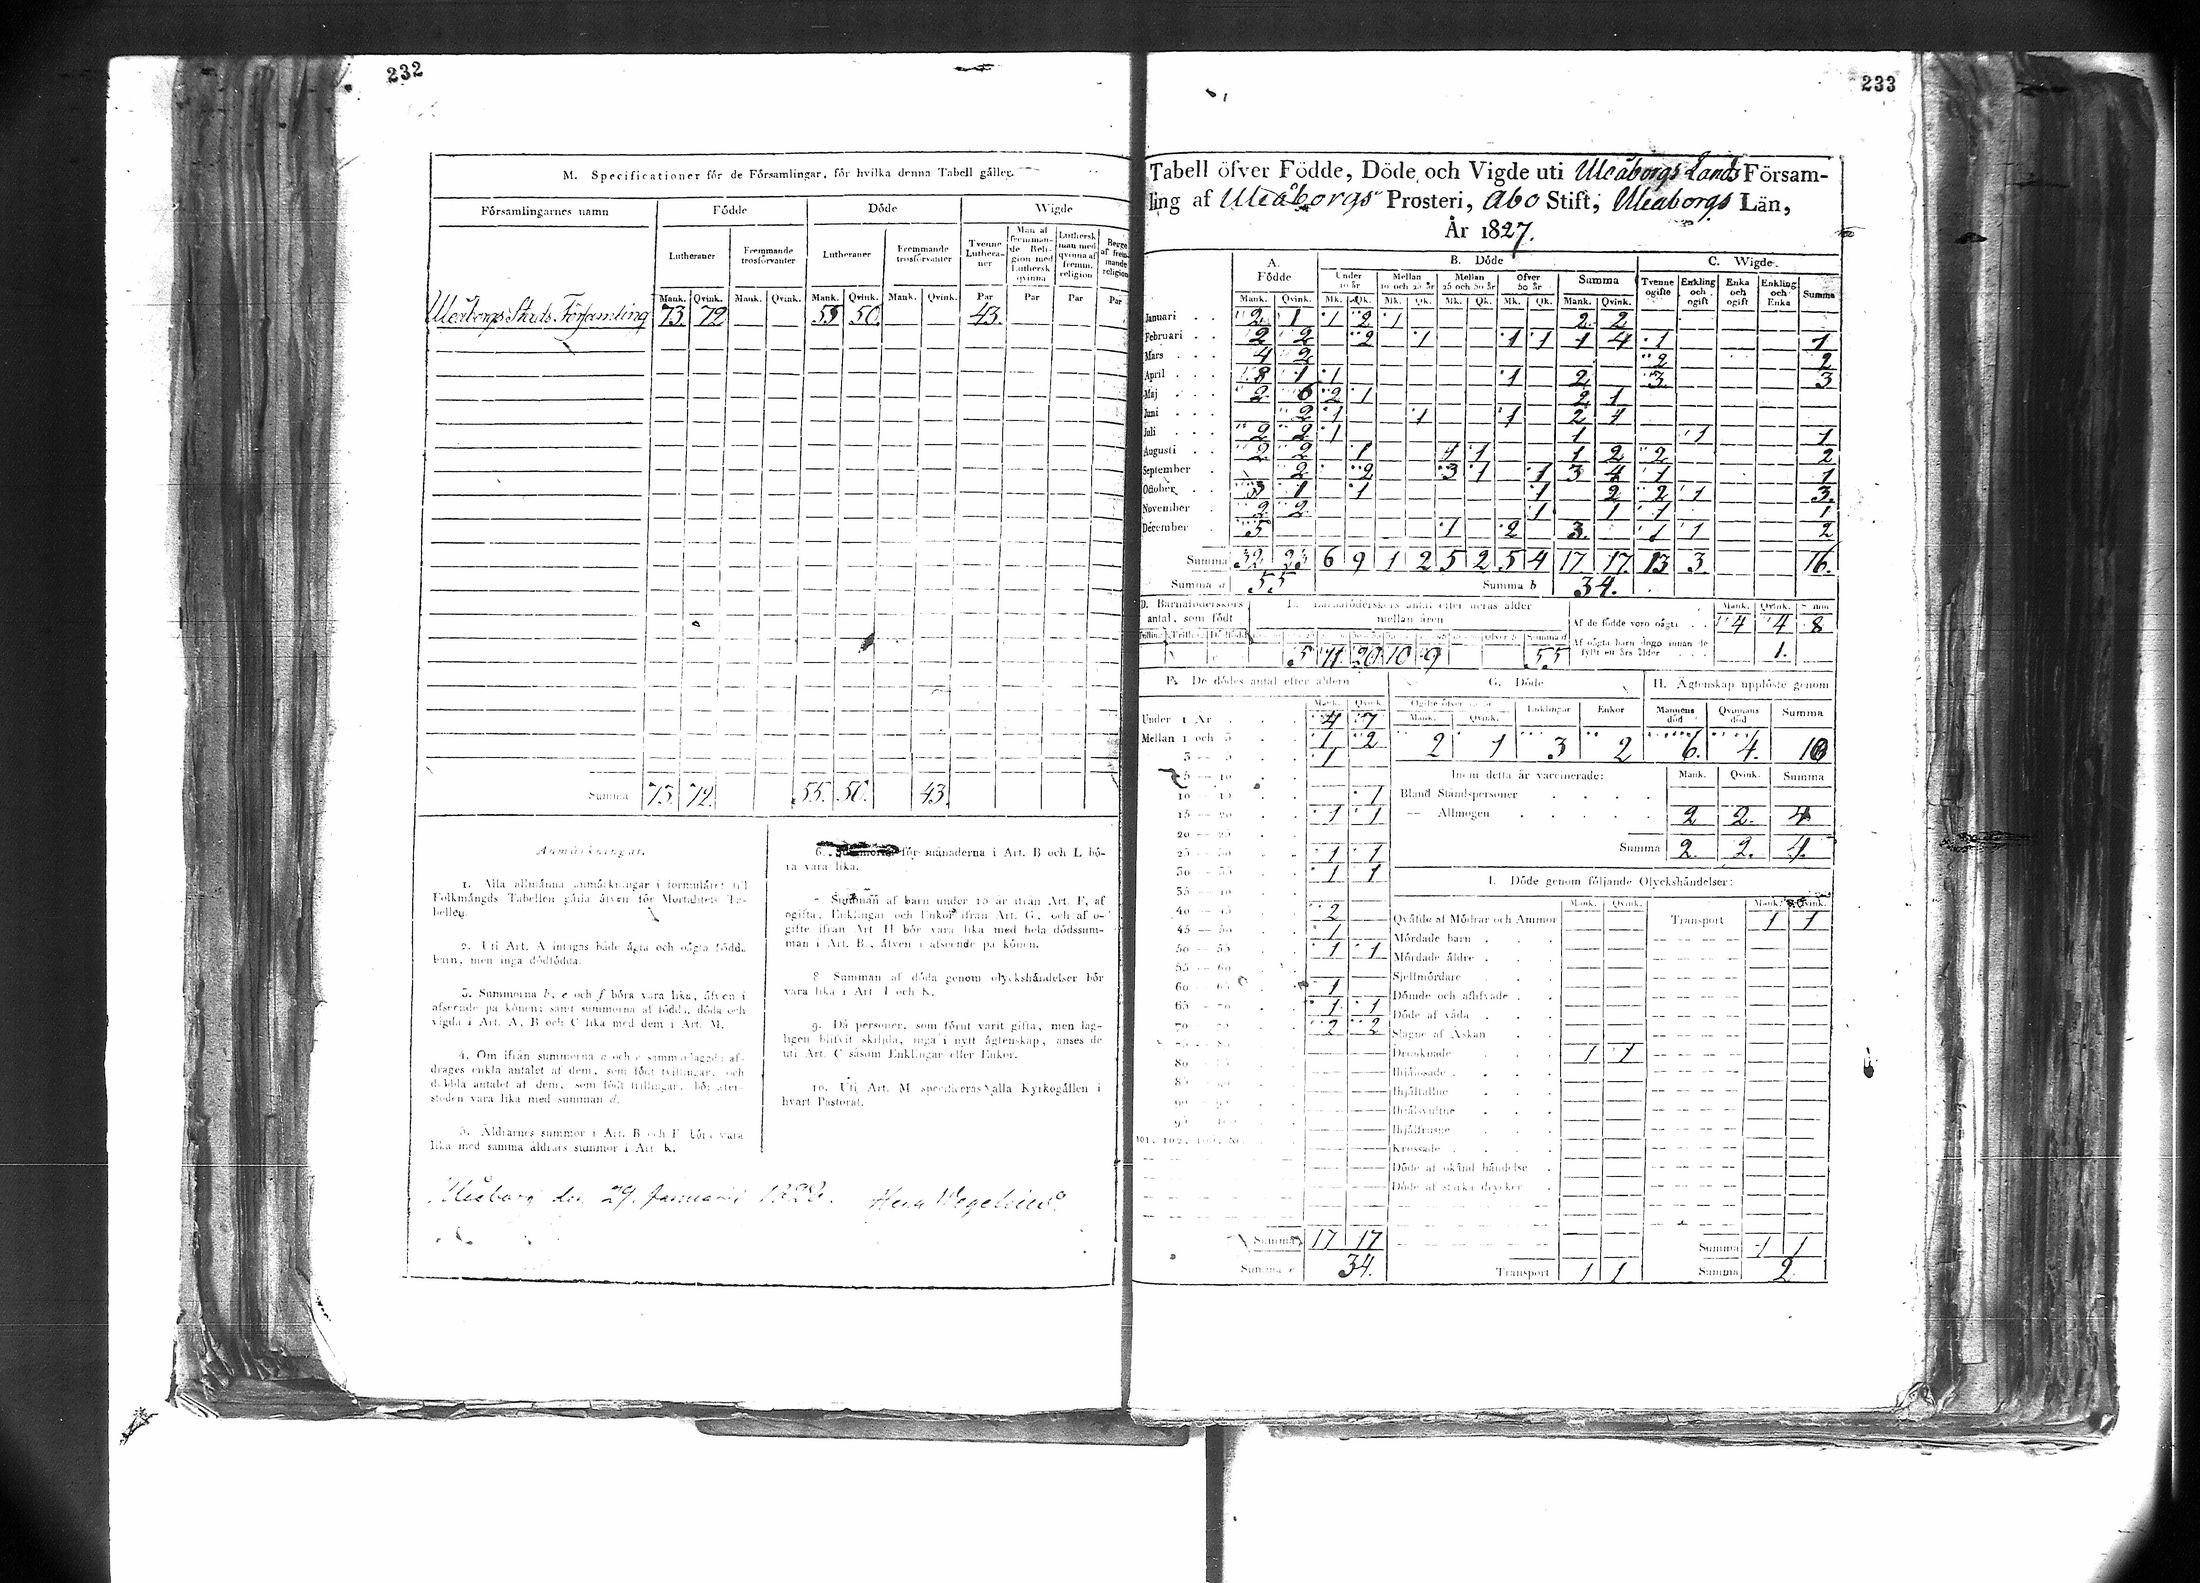 232
M. Specificationer för de Församlingar, för hvilka denna Tabell gäller.
Församlingarnes namn | Födde | Döde | Wigde
Lutheraner | Fremmande trosförvanter | Lutheraner | Fremmande trosförvanter | Tvenne Lutheraner | Man af fremmande Religion med Luthersk qvinna | Luthersk man med qvinna af fremm. religion | Begge af fremmande religion
Mank. Qvink. Mank. Qvink. Mank. Qvink. Mank. Qvink. Par Par Par Par
Uleåborgs Stads Församling 73. 72 55 50. 43.
Summa 73. 72. 55. 50. 43.
Anmärkningar.
1. Alla allmänna anmärkningar i formuläret till
Folkmängds Tabellen gälla äfven för Mortalitets Ta-
bellen.
2. Uti Art. A intagas både ägta och oägta födda
barn, men inga dödfödda.
3. Summorna b, e och f böra vara lika, äfven i
afseende på könen; samt summorna af födda, döda och
vigda i Art. A, B och C lika med dem i Art. M.
4. Om ifrån summorna
drages enkla antalet af dem, som födt tvillingar, och
dubbla antalet af dem, som födt trillingar, bör åter-
stoden vara lika med summan d.
5. Åldrarnes summor i Art. B och F böra vara
lika med samma åldrars summor i Art. K.
6. Summorna för månaderna i Art. B och L bö-
ra vara lika.
7. Summan af barn under 15 år ifrån Art. F, af
ogifta, Enklingar och Enkor ifrån Art. G, och af o-
gifte ifrån Art H bör vara lika med hela dödssum-
man i Art. B., äfven i afseende på könen.
8. Summan af döda genom olyckshändelser bör
vara lika i Art I och K.
9. Då personer, som förut varit gifta, men lag-
ligen blifvit skiljda, ingå i nytt ägtenskap, anses de
uti Art. C såsom Enklingar eller Enkor.
10. Uti Art. M specificeras alla Kyrkogällen i
hvart Pastorat.
Uleåborg den 29. Januarii 1828. Wegelius
233
Tabell öfver Födde, Döde och Vigde uti Uleåborgs Lands Försam-
ling af Uleåborgs Prosteri, Åbo Stift, Uleaborgs Län,
År 1827.
A. Födde | B. Döde | C. Wigde.
Under 10 år | Mellan 10 och 25 år | Mellan 25 och 50 år | Öfver 50 år | Summa | Tvenne ogifte | Enkling och ogift | Enka och ogift | Enkling och Enka | Summa
Mank. Qvink. Mk. Qk. Mk. Qk. Mk. Qk. Mk. Qk. Mank. Qvink.
Januari 2 1 1 2 1 2 2
Februari 2 2 2 1 1 1 1 4 1 1
Mars 4 2 2 2
April 8 1 1 1 2 3 3
Maj 2 6 2 1 2 1
Juni 2 1 1 1 2 1
Juli 2 2 1 1 1 1
Augusti 2 2 1 1 1 1 2 2 2
September 2 2 3 1 1 3 4 1 1
October 3 1 1 1 2 2 1 3.
November 2 2 1 1 1 1
December 5 1 2 3. 1 1 2
Summa 32 23 6 9 1 2 5 2 5 4 17 17. 13 3. 16.
Summa a 55 Summa b 34.
D. Barnaföderskors antal, som födt
E. Barnaföderskors antal efter deras ålder mellan åren
Summa d
5 11 20 10 9 55
Mank. Qvink. Summ
Af de födde voro oägta 4 4 8
Af oägta barn dogo innan de
fyllt en års ålder 1.
F. De dödes antal efter åldern
Mank. Qvink.
Under 1 År 4 7
Mellan 1 och 3 1 2
3 — 5 1
5 — 10
10 — 15 1
15 — 20 1 1
20 — 25
25 — 30 1 1
30 — 35 1 1
35 — 40
40 — 45 2
45 — 50 1
50 — 55 1 1
55 — 60
60 — 65 1
65 — 70 1 1
70 — 75 2 2
75 — 80
80 — 85
85 — 90
90 — 95
95 — 100
Summa 17 17
Summa 34.
G. Döde
Enklingar Enkor
Mank. Qvink.
2 1 3 2
H. Ägtenskap upplöste genom
Mannens död Qvinnans död Summa
6. 4. 10
Inom detta år vaccinerade: Mank. Qvink. Summa
Bland Ståndspersoner
— Allmogen 2 2. 4
Summa 2. 2. 4.
I. Döde genom följande Olyckshändelser:
Mank. Qvink. Mank. Qvink.
Qväfde af Mödrar och Ammor Transport 1 1
Mördade barn
Mördade äldre
Sjelfmördare
Dömde och aflifvade
Döde af våda
Slagne af Åskan
Drunknade 1 1
Ihjälfallne
Ihjälfrusne
Krossade
Döde af okänd händelse
Döde af starka drycker
Summa 1 1
Transport 1 1. Summa 2.